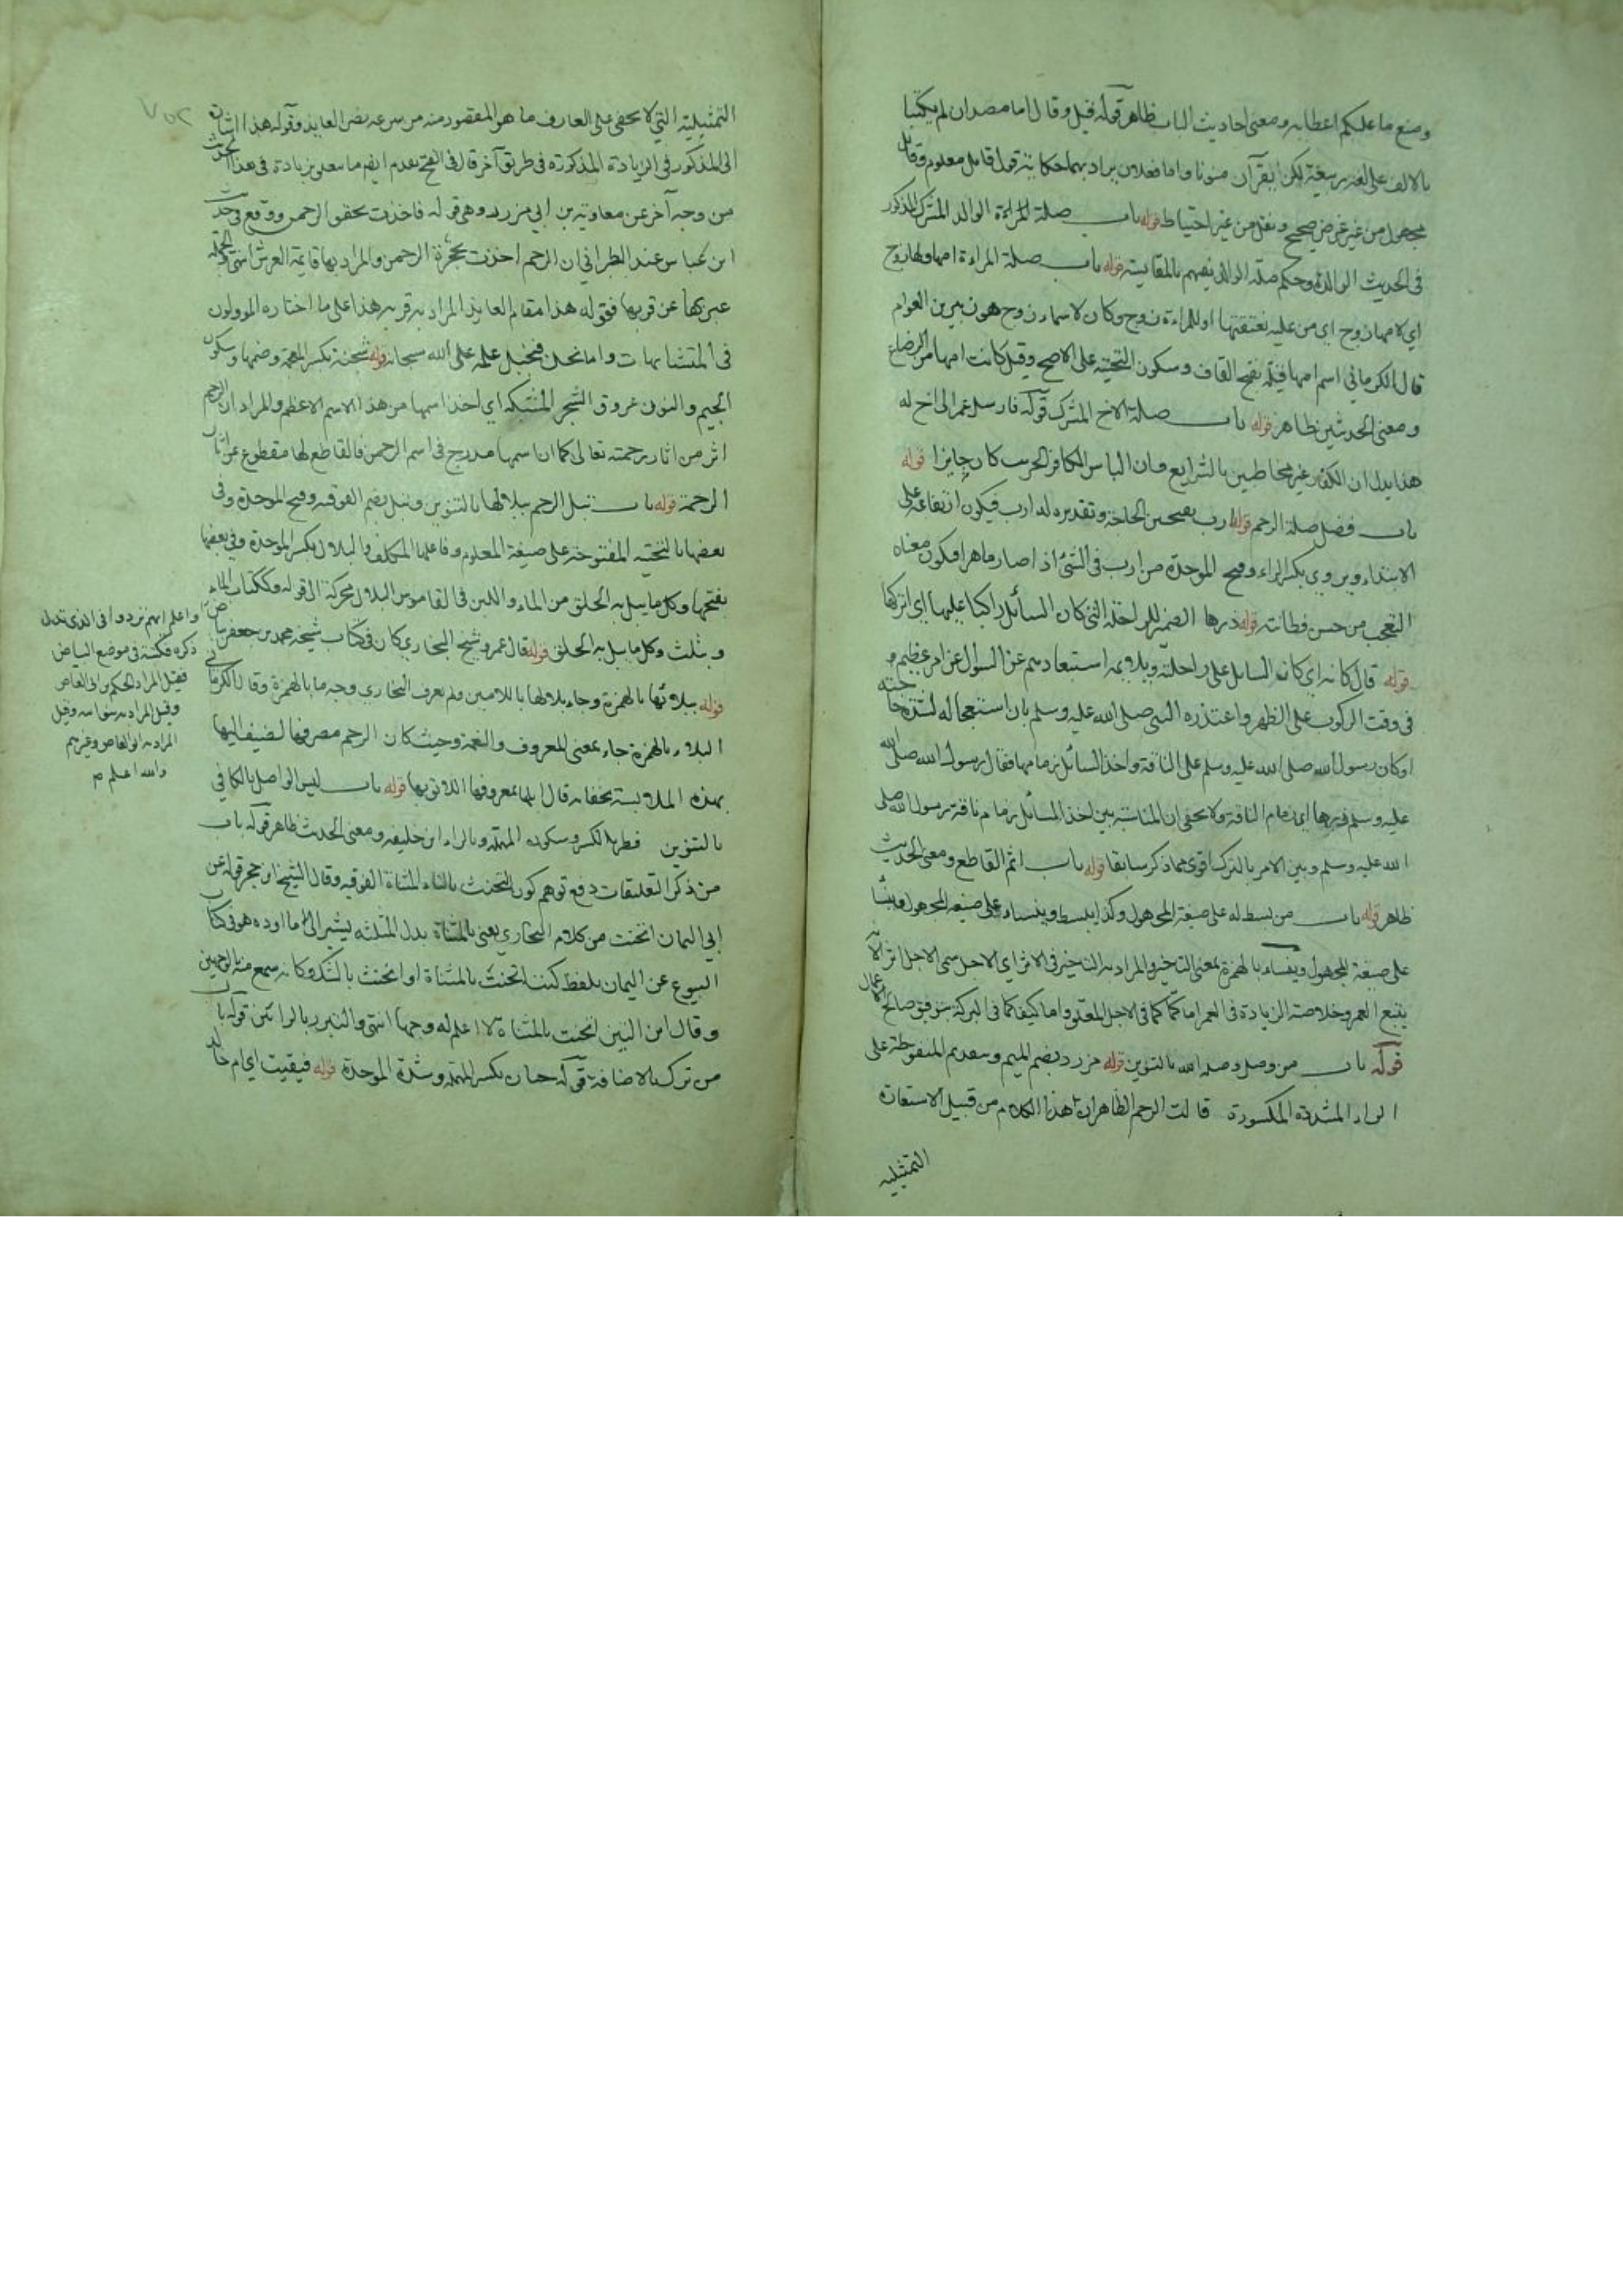 وضع ما عليكم اعطابه ومعنى احاديث الباب ظاهر قوله قيل وقال اما مصدران لم يكتبا
بالالف على لغة ربيعة لكن يقرآن منونا واما فعلان يراد بهما حكاية قول قائل معلوم وقائل
مجهول من غير غرض صحيح ونقل من غير احتياط قوله باب صلة المراءة الوالد المشرك المذكور
في الحديث الوالدة وحكم صلة الوالد يفهم بالمقايسة قوله باب صلة المراءة امها ولها زوج
اي لامها زوج اي من عليه نفقتها او للمراءة زوج وكان لاسماء زوج هو زبير بن العوام
قال الكرماني اسم امها قيلة بفتح القاف وسكون التحتية على الاصح وقيل كانت امها من الرضاع
ومعنى الحديثين ظاهر قوله باب صلة الاخ المشرك قوله فارسل عمر الى اخ له
هذا يدل ان الكفار غير مخاطبين بالشرايع وان الباس الكافر الحرير كان جايزا قوله
باب فضل صلة الرحم قوله ارب بفتحتين الحاجة وتقديره له ارب فيكون ارتفاعه على
الابتداء ويروى بكسر الراء وفتح الموحدة من ارب في الشئ اذا صار ماهرا فيكون معناه
التعجب من حسن فطانته قوله ذرها الضمير للراحلة التي كان السائل راكبا عليها اي اتركها
قوله قال كانه اي كان السايل على راحلته ويلايمه استبعادهم عن السوال عن امر عظيم
في وقت الركوب على الظهر واعتذره النبي صلى الله عليه وسلم بان استعجاله لشدة حاجته
او كان رسول الله صلى الله عليه وسلم على الناقة واخذ السائل زمامها فقال رسول الله صلى الله
عليه وسلم ذرها اي زمام الناقة ولا يخفى ان المناسبة بين اخذ السائل زمام ناقة رسول الله صلى
الله عليه وسلم وبين الامر بالترك اقوى مما ذكر سابقا قوله باب اثم القاطع ومعنى الحديث
ظاهر قوله باب من بسط له على صيغة المجهول وكذا يبسط وينساء على صيغة المجهول
على صيغة المجهول وينساء بالهمزة بمعنى التاخير والمراد به التاخير في الاثر اي الاجل سمى الاجل اثر لانه
يتبع العمر وخلاصته الزيادة في العمر اما كما كما في الاجل المعلق واما كيفا كما في البركة بتوفيق صالح الاعمال
قوله باب من وصل وصله الله بالتنوين قوله مزرد بضم الميم وتقديم المفتوحة على
الراء المشددة المكسورة قالت الرحم الظاهر ان هذا الكلام من قبيل الاستعارة
التمثيلية
التمثيلية التي لا يخفى على العارف ما هو المقصود منه من سرعة نصر العايذ وقوله هذا اشارة
الى المذكور في الزيادة المذكورة في طريق آخر قال في الفتح تقدم ايضا ما يتعلق بزيادة في هذا الحديث
من وجه آخر عن معاوية بن ابي مزرد وهي قوله فاخذت بحقو الرحمن ووقع في حديث
ابن عباس عند الطبراني ان الرحم اخذت بحجزة الرحمن والمراد بها قايمة العرش انتهى
عبر بها عن قربها فقوله هذا مقام العايذ المراد به قربه هذا على ما اختاره المؤولون
في المتشابهات واما نحن فنحيل علمه على الله سبحانه قوله شجنة بكسر المعجمة وضمها وسكون
الجيم والنون عروق الشجر المشتبكة اي اخذ اسمها من هذا الاسم الاعظم والمراد ان الرحم
اثر من اثار رحمته تعالى كما ان اسمها مدرج في اسم الرحمن فالقاطع لها مقطوع عن اثار
الرحمة قوله باب تبل الرحم ببلالها بالتنوين وتبل بضم الفوقيه وفتح الموحدة وفي
بعضها بالتحتيه المفتوحة على صيغة المعلوم وفاعلها المكلف والبلال بكسر الموحدة وفي بعضها
بفتحها وكل ما يبل به الحلق من الماء واللبن في القاموس البلال محركة الى قوله وككتاب الماء
ويثلث وكل ما يبل به الحلق قوله قال عمرو شيخ البخاري كان في كتاب شيخه محمد بن جعفر بياض
قوله ببلائها بالهمزة وجاء ببلالها باللامين ولم يعرف البخاري وجه ما بالهمزة وقال الكرماني
البلاء بالهمزة جاء بمعنى المعروف والنعمة وحيث كان الرحم مصرفها اضيف اليها
بهذه الملابسة فكانه قال ابلها بمعروفها اللائق بها قوله باب ليس الواصل بالكافي
بالتنوين فطر بالكسر وسكون المهملة وبالراء ابن خليفه ومعنى الحديث ظاهر قوله باب
من ذكر التعليقات دفع توهم كون التحنث بالتاء المثناة الفوقيه وقال الشيخ ابن حجر قوله عن
ابي اليمان اتحنت من كلام البخاري يعنى بالمثناة بدل المثلثه يشير الى ما اورده هو في كتاب
البيوع عن اليمان بلفظ كنت اتحنث بالمثناة او اتحنث بالشك وكانه سمع منه بالوجهين
وقال ابن التين اتحنت بالمثناة لا اعلم له وجها انتهى والتبرر بالرائين قوله باب
من ترك بالاضافة قوله حبان بكسر المهملة وشدة الموحدة قوله فبقيت اي ام خالد
واعلم انهم ترددوا في الذي ترك
ذكره فكتب في موضع البياض
فقيل المراد الحكم بن ابي العاص
وقيل المراد به بنو اميه وقيل
المراد به ابو العاص وغيرهم
والله اعلم م